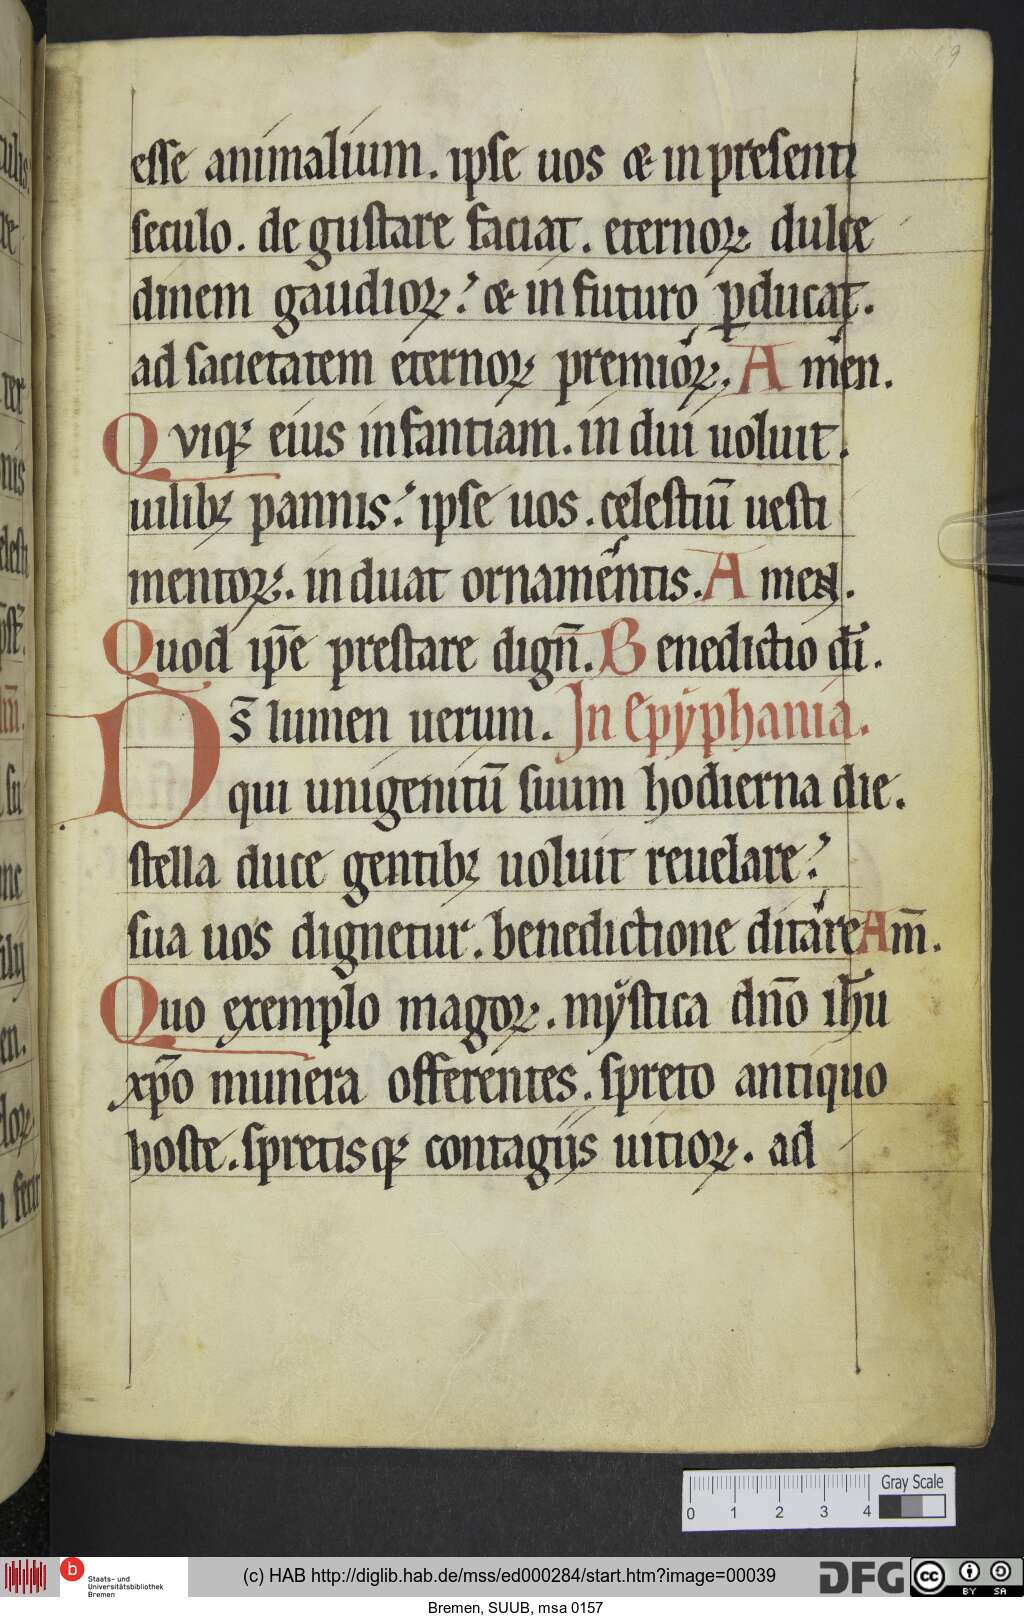 19
esse animalium. ipse uos & in presenti
seculo. de gustare faciat. eternoꝝ dulce
dinem gaudioꝝ. & in futuro ꝑducat.
ad sacietatem eternoꝝ premioꝝ. Amen.
Qviqꝫ eius infantiam. in dui uoluit.
uilibꝫ pannis. ipse uos. celestiū uesti
mentoꝝ. in duat ornamentis. Amen.
Quod ip̄e prestare dign̄. Benedictio dī.
Ds̄ lumen uerum. In Epyphania.
qui unigenitū suum hodierna die.
stella duce gentibꝫ uoluit reuelare.
sua uos dignetur. benedictione ditare Am̄.
Quo exemplo magoꝝ. mẏstica dn̄o ih̄u
xp̄o munera offerentes. spreto antiquo
hoste. spretisqꝫ contagiis uitioꝝ. ad
Gray Scale
0 1 2 3 4
b Staats- und
Universitätsbibliothek
Bremen
(c) HAB http://diglib.hab.de/mss/ed000284/start.htm?image=00039
DFG
cc BY SA
Bremen, SUUB, msa 0157